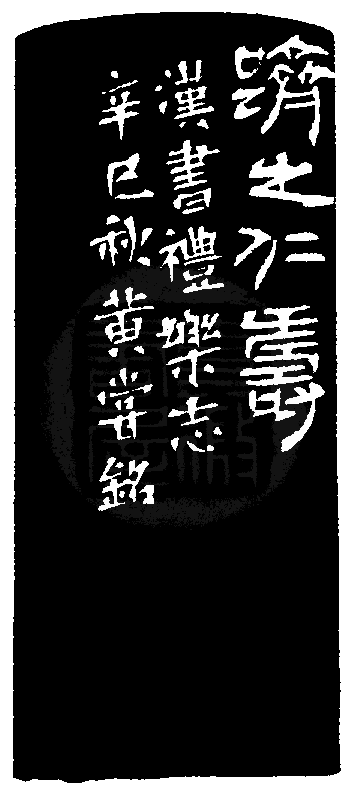 躋之仁壽
漢書禮樂志
辛巳秋黃嘗銘